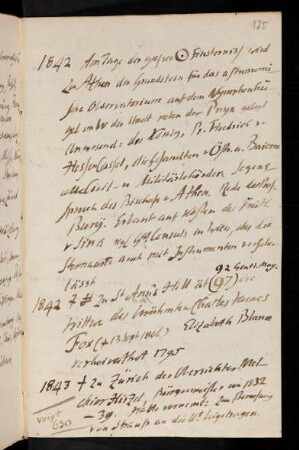 125
1842 Am Tage der großen ☉ Finsterniss wird
zu Athen der Grundstein für das astronomi
sche Observatorium auf dem Nymphenhü
gel in der Stadt neben der Pnyx gelegt
Anwesend: des König, Pr. Friedrich v.
Hessen Cassel, die Gesandten v. Östr. u. Baiern
alle Civil- u Militärbehörden Segens
spruch des Bischofs v Athen. Rede des
Erbaut auf Kosten des Freih
v Sina Consuls in Wien, der die
Sternwarte auch mit Instrumenten
lässt
92 Gentl. Mag.
1842 zu St. Ann's Hill (97) die
Wittwe des berühmten Charles James
Fox († 13 Sept 1806) Elizabeth Blane
verheirathet 1795
1843 † zu Zürich der Oberrichter Mel
chior Hirzel, Bürgermeister v 1832
–39. Hatte zur Berufung
von Strauss an die U. beigetragen.
Voigt
630